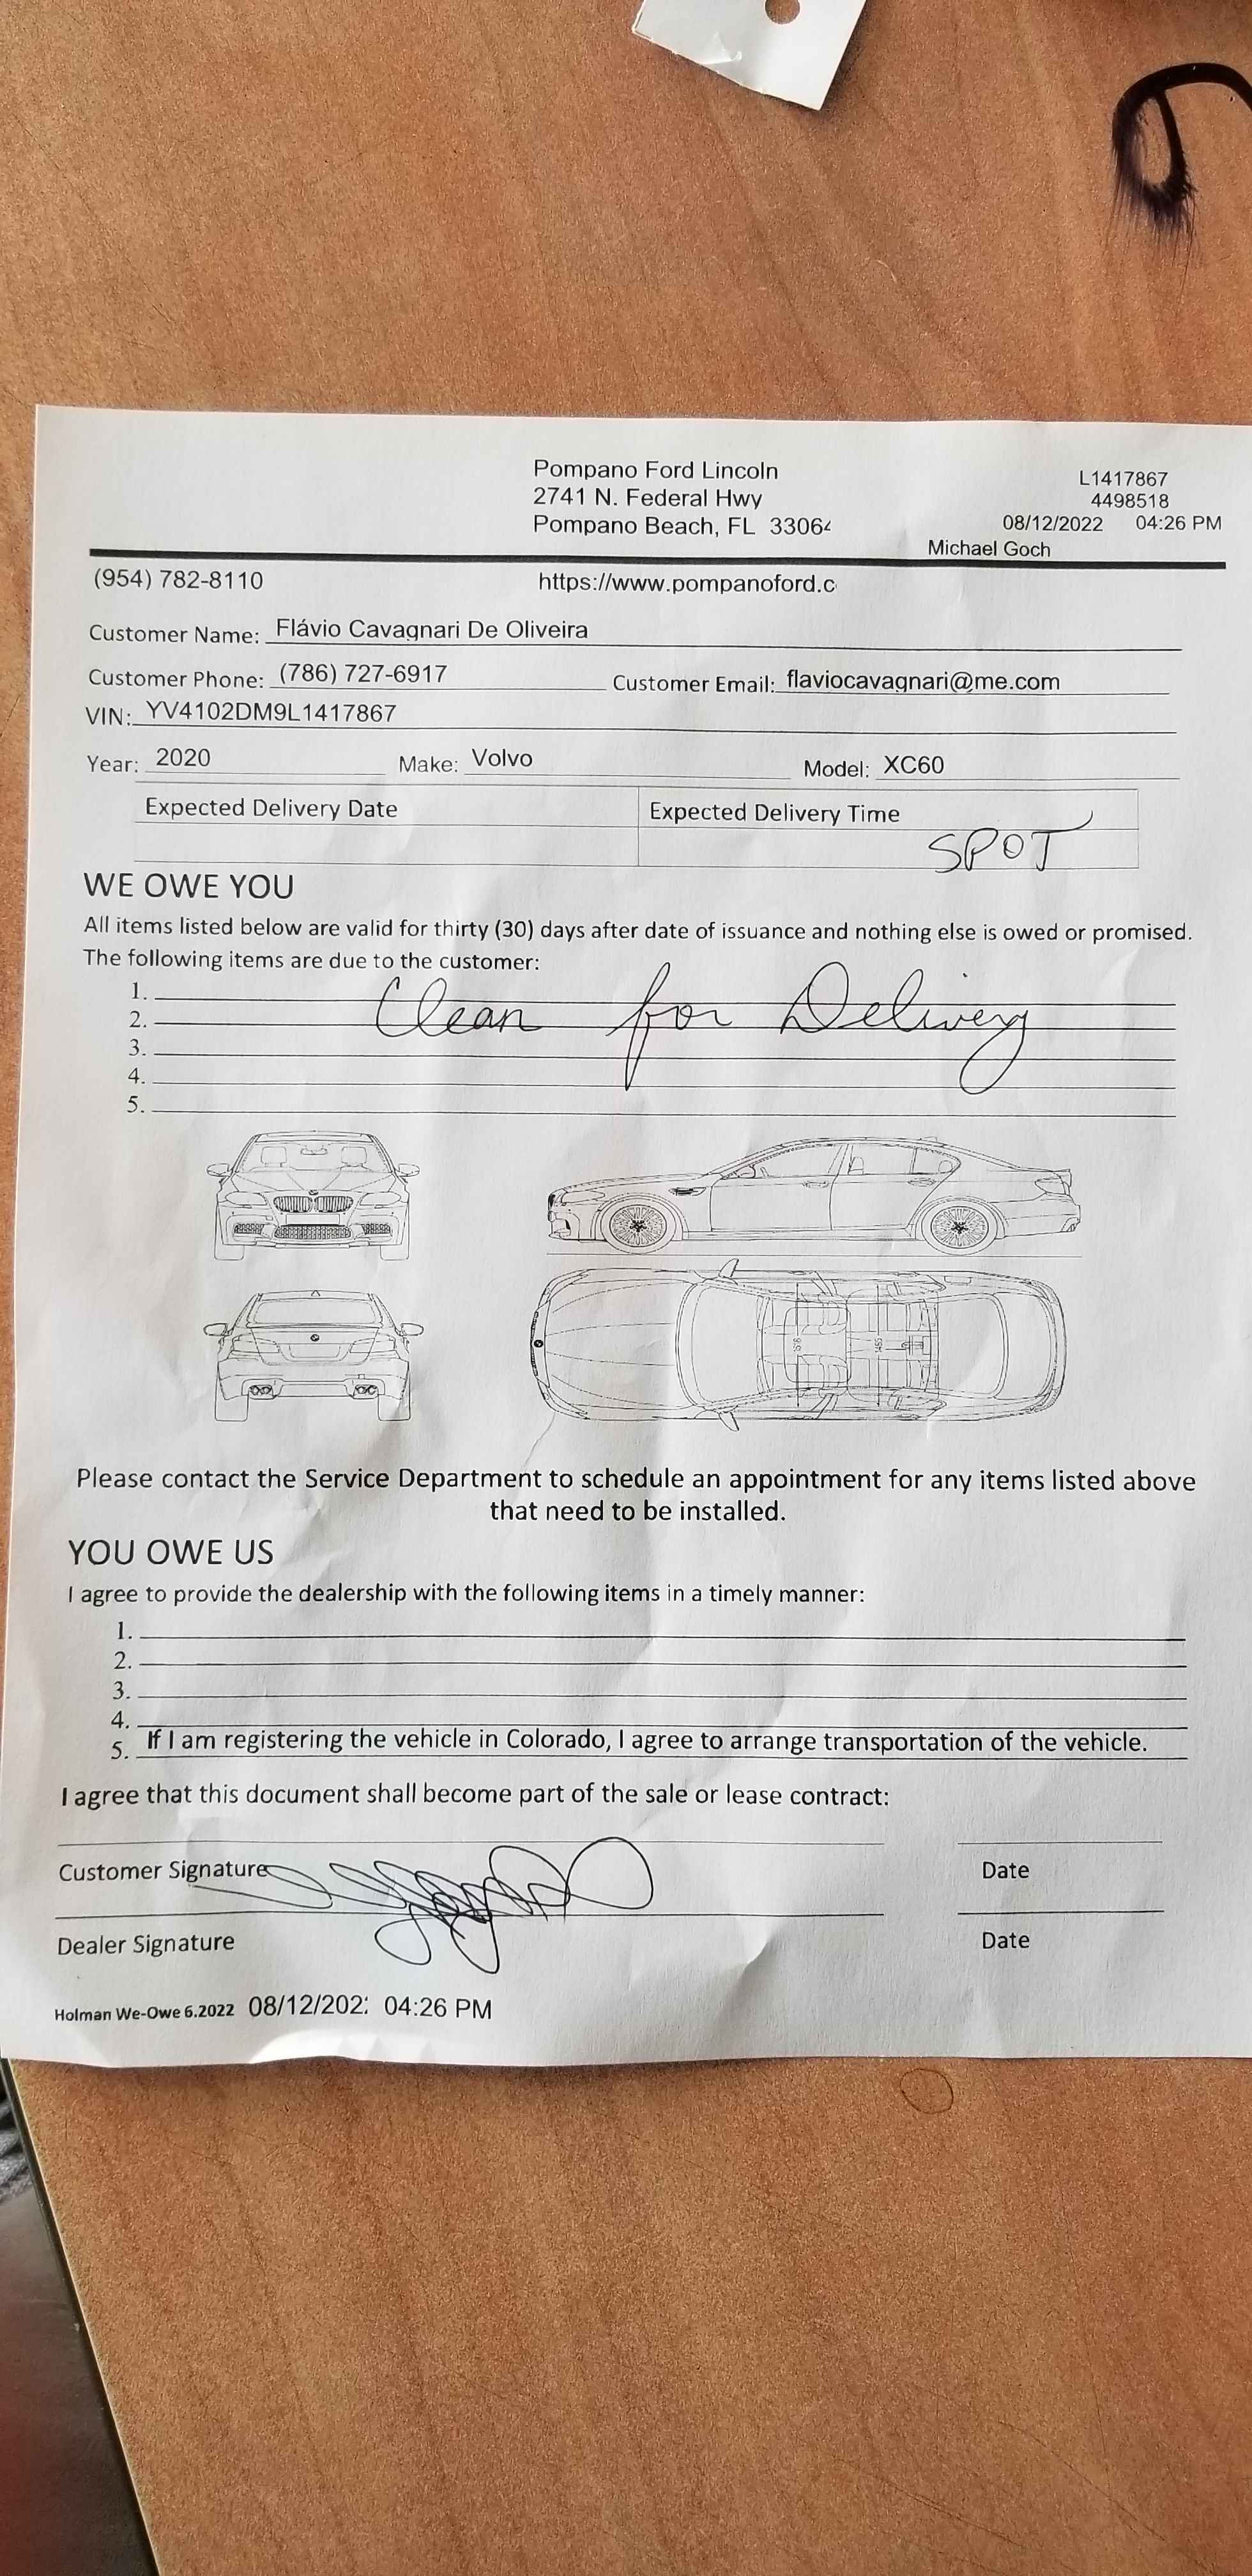 Pompano Ford Lincoln
2741 N. Federal Hwy
Pompano Beach, FL 3306
L1417867
4498518
08/12/2022 04:26 PM
Michael Goch
(954) 782-8110
https://www.pompanoford.c
Customer Name: Flávio Cavagnari De Oliveira
Customer Phone: (786) 727-6917 Customer Email: flaviocavagnari@me.com
VIN: YV4102DM9L1417867
Year: 2020 Make: Volvo Model: XC60
Expected Delivery Date Expected Delivery Time
SPOT
WE OWE YOU
All items listed below are valid for thirty (30) days after date of issuance and nothing else is owed or promised.
The following items are due to the customer:
1.
2. Clean for Delivery
3.
4.
5.
Please contact the Service Department to schedule an appointment for any items listed above
that need to be installed.
YOU OWE US
I agree to provide the dealership with the following items in a timely manner:
1.
2.
3.
4.
5. If I am registering the vehicle in Colorado, I agree to arrange transportation of the vehicle.
I agree that this document shall become part of the sale or lease contract:
Customer Signature Date
Dealer Signature Date
Holman We-Owe 6.2022 08/12/202 04:26 PM